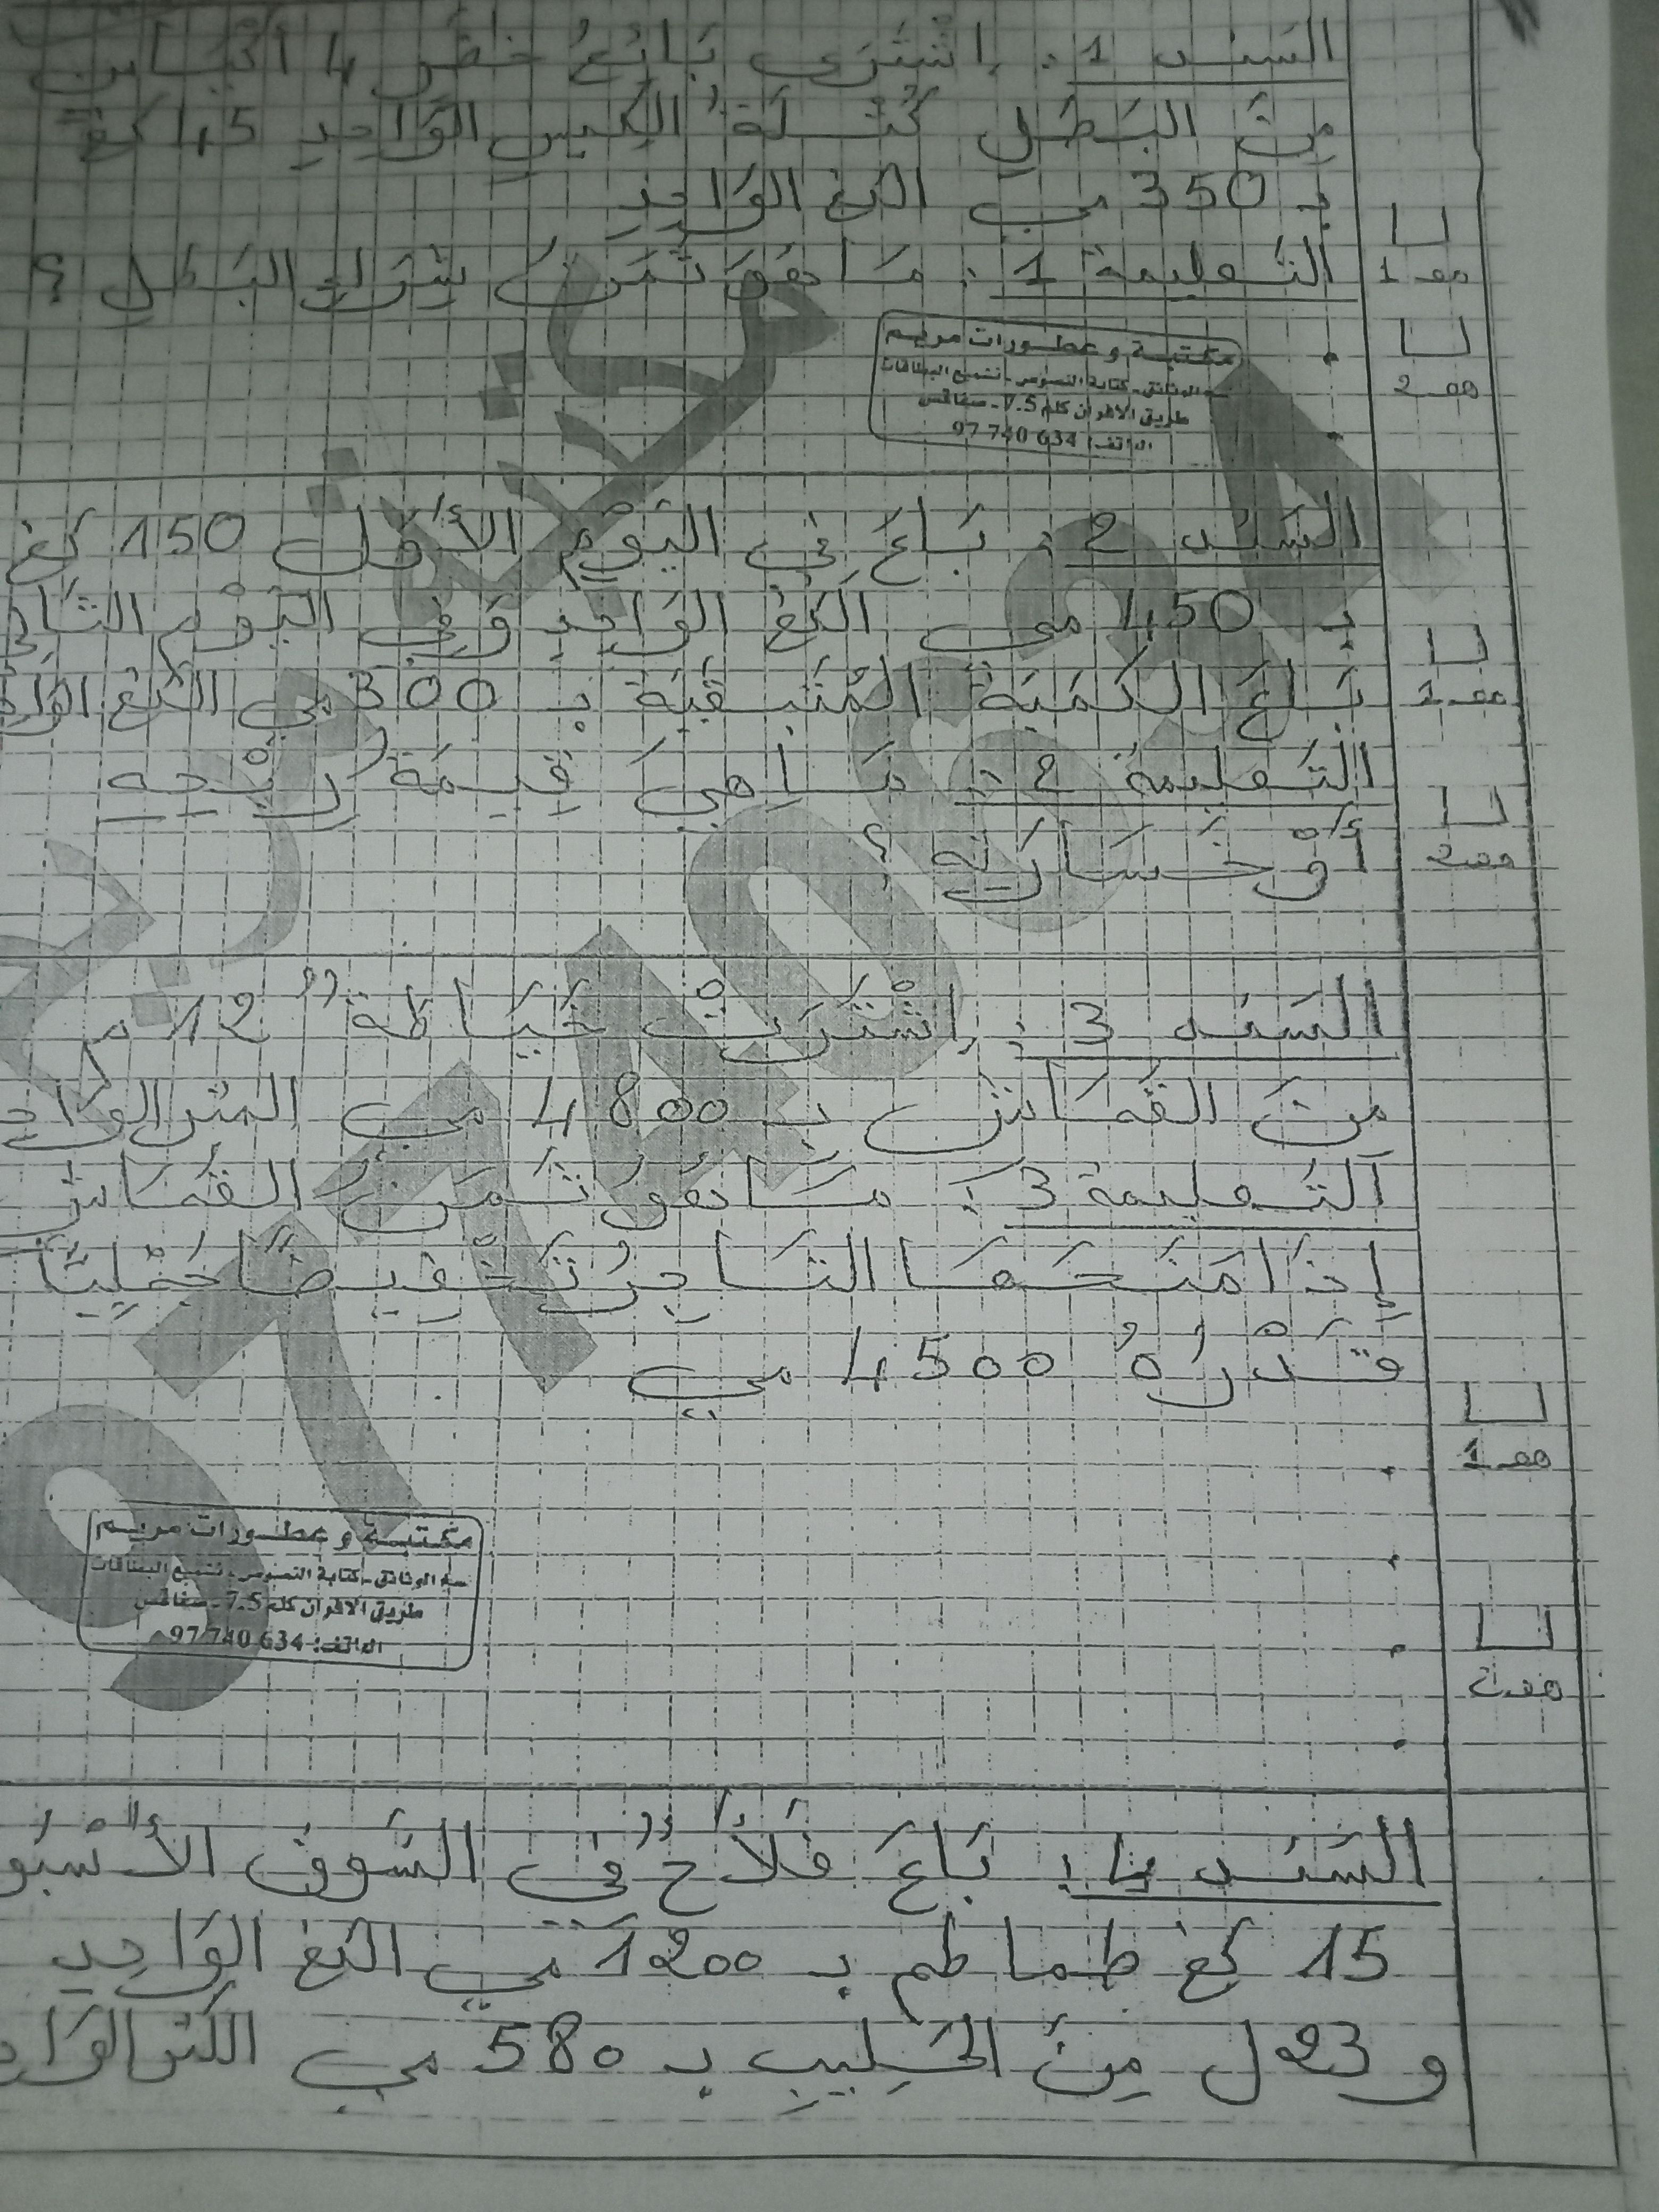 السَند 1 : اِشْتَرَى بَائِعُ خُضَرٍ 4 أكْيَاسٍ
مِنَ البَصَلِ كُتْلَةُ الكِيسِ الوَاحِدِ 45 كغ
بِـ 350 مي الكغ الوَاحِدِ
التَعليمة 1 : مَا هُوَ ثَمَنُ شِرَاءِ البَصَلِ ؟
مكتبة و عطورات مريم
الوثائق - كتابة النصوص - تشميع البطاقات
طريق الافران كلم 7.5 - صفاقس
الهاتف: 634 740 97
هعـ 1
هعـ 2
السَند 2 : بَاعَ فِي اليَوْمِ الأَوَّلِ 150 كغ
بِـ 450 مي الكغ الوَاحِدِ وَفِي اليَوْمِ الثَانِي
بَاعَ الكَمِيَةَ المُتَبَقِيَةَ بِـ 300 مي الكغ الوَاحِدِ
التَعليمة 2 : مَا هِيَ قِيمَةُ رِبْحِهِ
أَوْ خَسَارَتِهِ ؟
هعـ 1
هعـ 2
السَند 3 : اِشْتَرَتْ خَيَاطَةٌ 12 م
مِنَ القُمَاشِ بِـ 4800 مي المتر الوَاحِدِ
التَعليمة 3 : مَا هُوَ ثَمَنُ القُمَاشِ
إِذَا مَنَحَهَا التَاجِرُ تَخْفِيضًا جُمْلِيًّا
قَدْرُهُ 4500 مي
هعـ 1
هعـ 2
مكتبة و عطورات مريم
الوثائق - كتابة النصوص - تشميع البطاقات
طريق الافران كلم 7.5 - صفاقس
الهاتف: 634 740 97
السَند 4 : بَاعَ فَلاَّحٌ فِي السُّوقِ
15 كغ طماطم بـ 1200 مي الكغ الوَاحِدِ
و 23 ل مِنَ الحَلِيبِ بـ 580 مي اللتر الوَاحِدِ